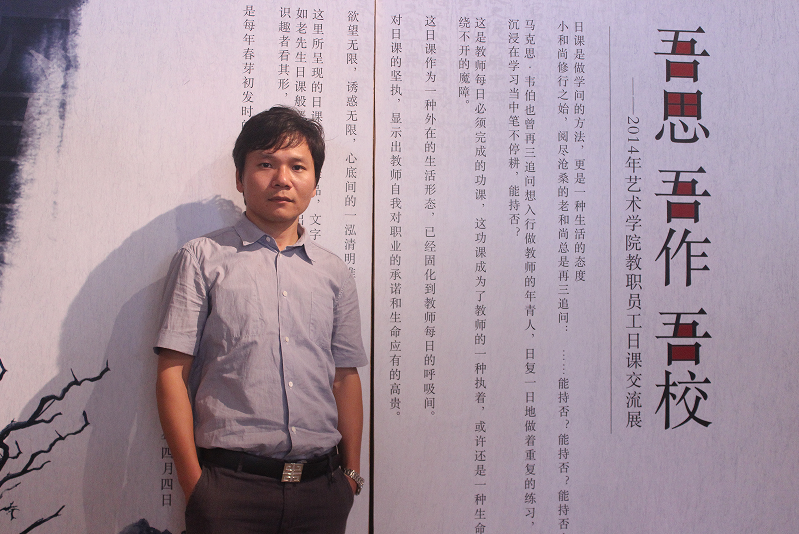 吾思 吾作 吾校
——2014年艺术学院教职员工日课交流展
日课是做学问的方法，更是一种生活的态度
小和尚修行之始，阅尽沧桑的老和尚总是再三追问：……能持否？能持否？能持否
马克思·韦伯也曾再三追问想入行做教师的年青人，日复一日地做着重复的练习，
沉浸在学习当中笔不停耕，能持否？
这是教师每日必须完成的功课，这功课成为了教师的一种执着，或许还是一种生命
绕不开的魔障。
这日课作为一种外在的生活形态，已经固化到教师每日的呼吸间。
对日课的坚执，显示出教师自我对职业的承诺和生命应有的高贵。
欲望无限，诱惑无限，心底间的一泓清明
这里所呈现的日课 品，文字
如老先生日课般
识趣者看其形，
是每年春芽初发时
四月四日